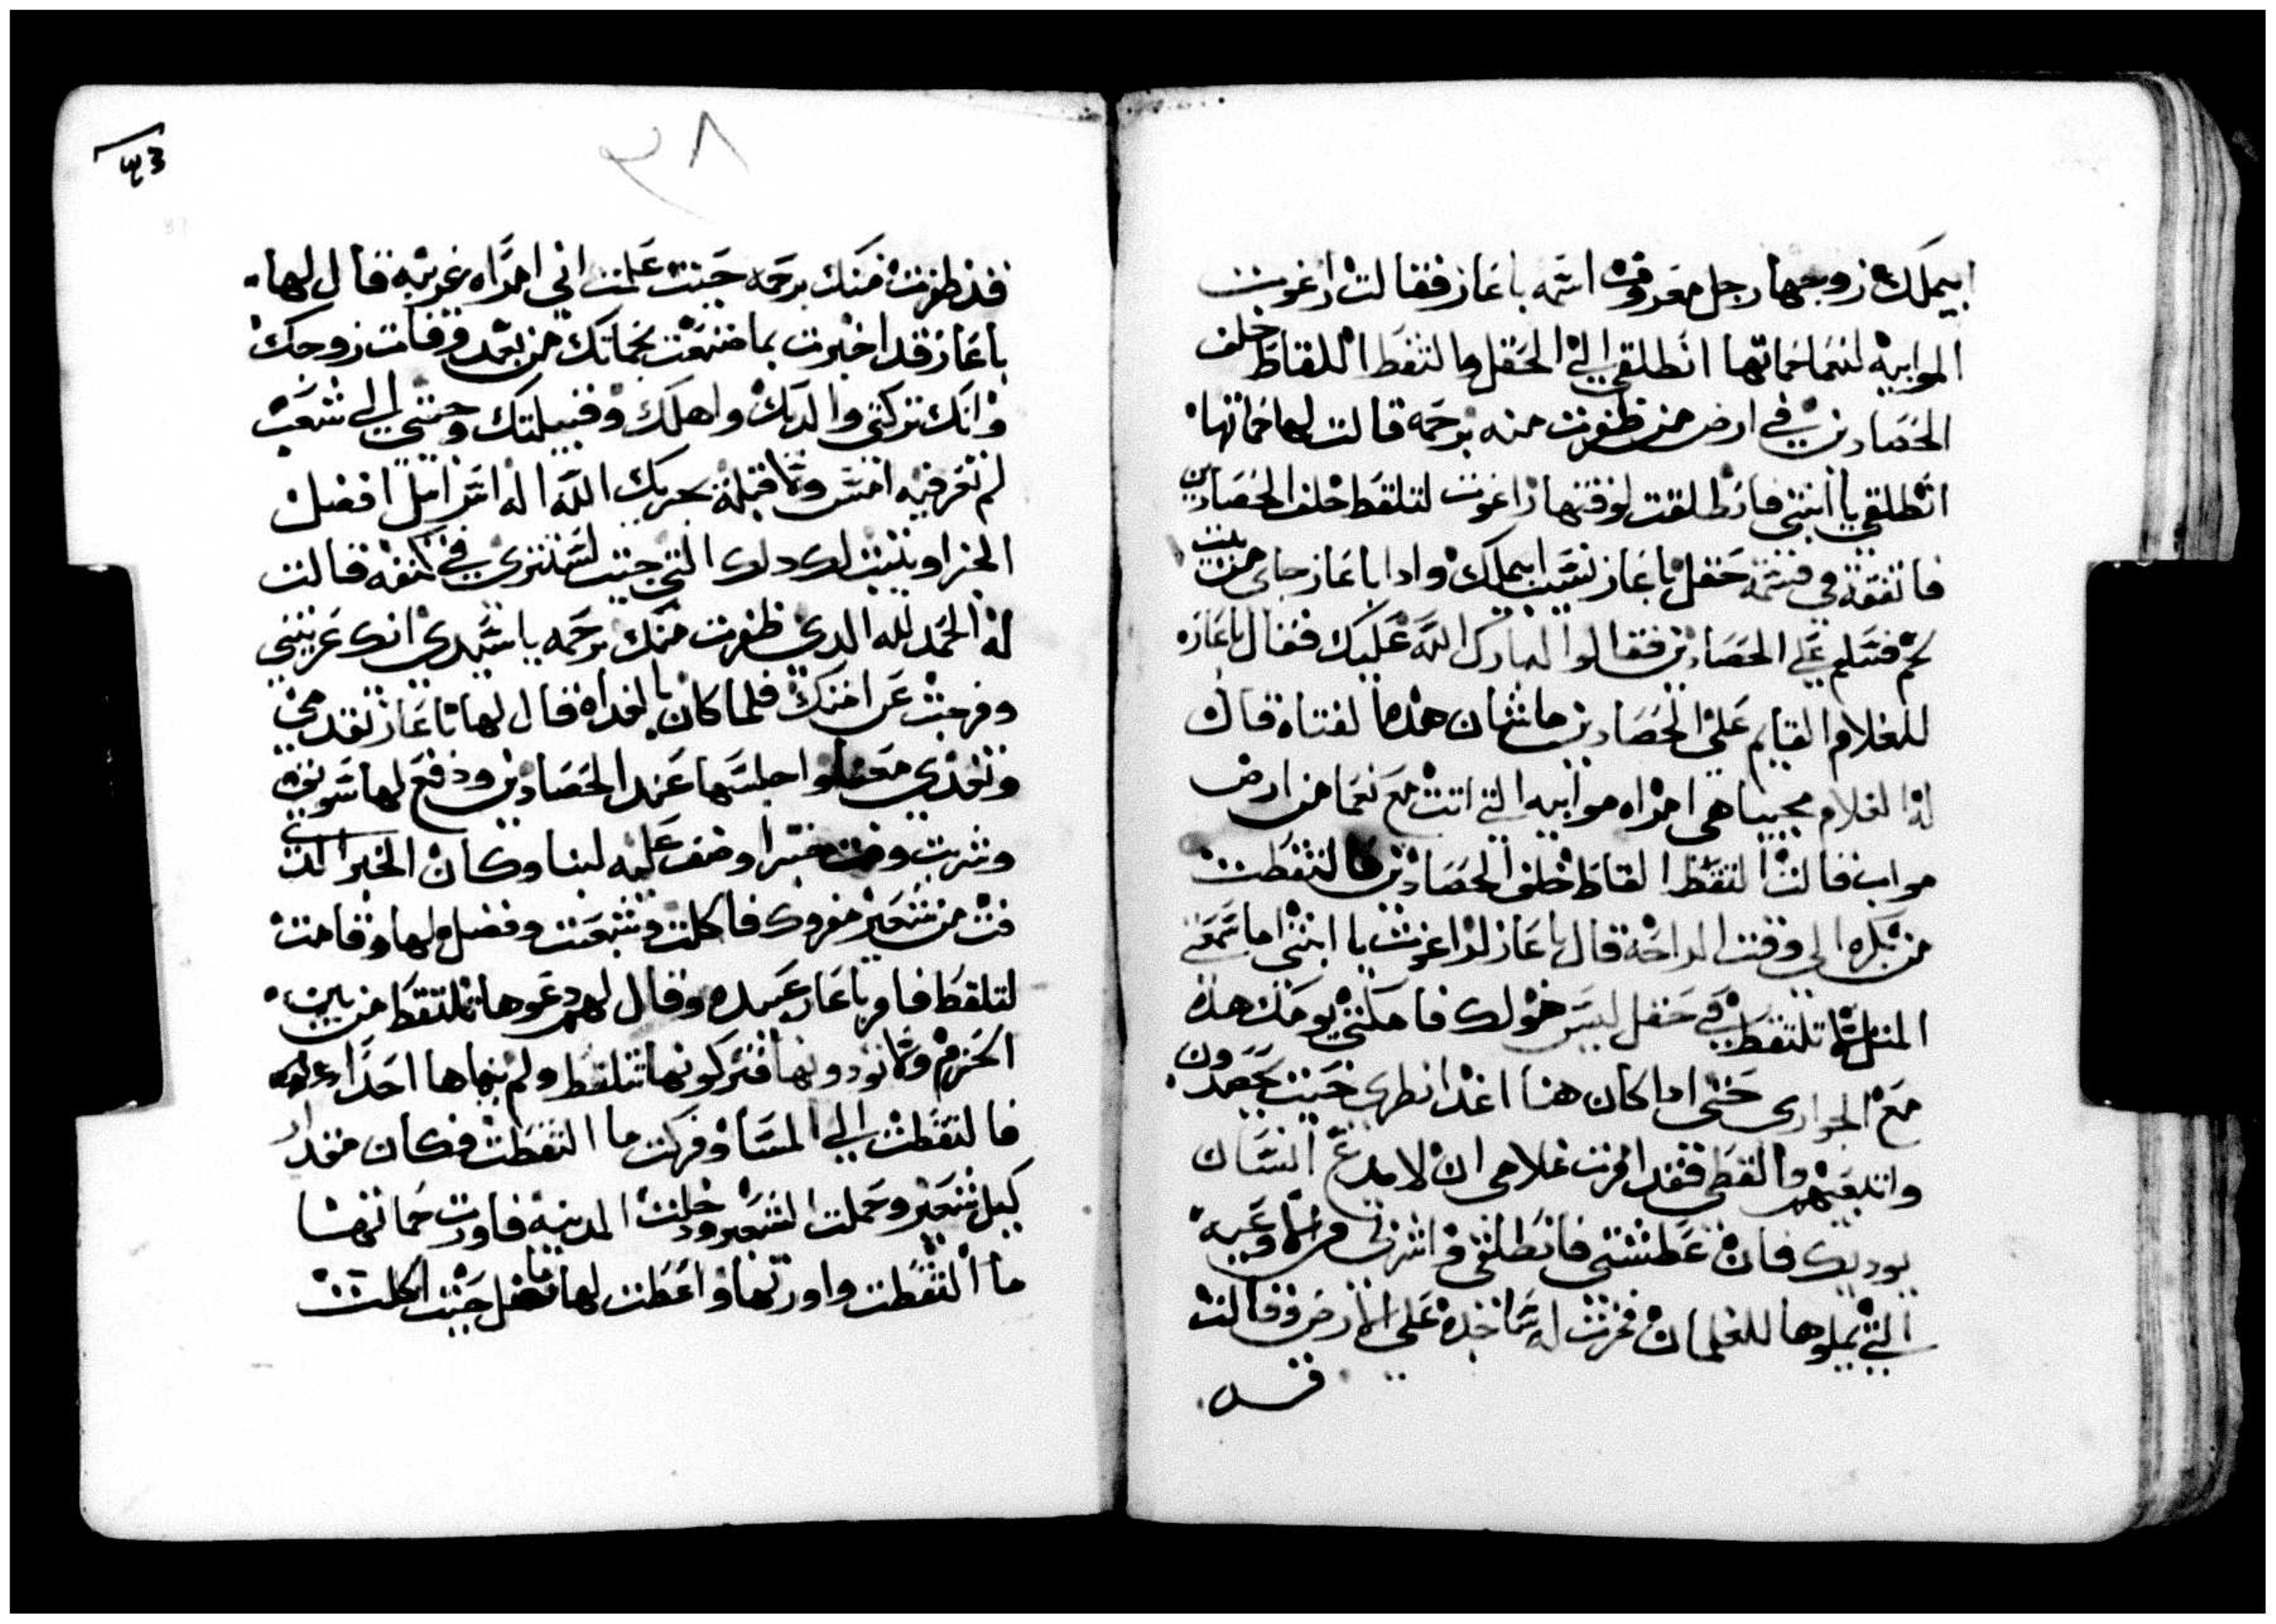 ابيملك زوجها رجل معروف اسمه باعاز فقالت راغوت
الموابيه لنعما حماتها انطلقي الي الحقل والتقط اللقاط خلف
الحصادين في ارض من ظفرت منه برحمه قالت لها حماتها
انطلقي يا ابنتي فانطلقت لوقتها راغوت لتلقط خلف الحصادين
فاتفقت في قسمة حقل باعاز نسيب ابيملك وادا باعاز جاي من بيت
لحم فسلم علي الحصادين فقالوا له بارك الله عليك فقال باعاز
للغلام القايم علي الحصادين ما شان هده الفتاه قال
له الغلام مجيبا هي امراه موابيه التي اتت مع نعما من ارض
مواب فقالت التقط القاط خلف الحصادين فالتقطت
من بكره الي وقت الراحه قال باعاز لراغوت يا ابنتي اما سمعتي
المثل لا تلتقطي في حقل ليس هو لك فامكتي يومك هده
مع الجواري حتي اداكان هنا اغدا نطري حيت يحصدون
واتبعيهم والقطي فقد امرت غلامي ان لا يدع انسان
يوديك فان عطشتي فانطلقي واشربي من الاوعيه
التي يملوها للغلمان فخرت له ساجده علي الارض وقالت
قد
٣٨
فقد ظفرت منك برحمه حيت علمت اني امراه غريبه قال لها
باعاز قد اخبرت بما صنعت بحماتك من بعد وفات زوجك
وانك تركتي والديك واهلك وقبيلتك وجيتي الي شعب
لم تعرفيه امس ولا قبله يجزيك الله اله اسراييل افضل
الجزا ويتيبت لك دلك التي جيت لتستتري في كنفه قالت
له الحمد لله الدي ظفرت منك برحمه يا سيدي انك عزيتني
وفرحت عن امتك فلما كان بالغداه قال لها باعاز تقدمي
وتغدي معنا واجلسها عند الحصادين ودفع لها سويق
وشربت وفت خبزا وصف عليه لبنا وكان الخبز الدي
فت من شعير مفروك فاكلت وشبعت وفضل لها وقامت
لتلقط فامر باعاز عبيده وقال لهم دعوها تلتقط من بين
الحزم ولا تودونها اتركونها تتلقط ولم ينهاها احدا
فالتقطت الي المسا وفركت ما التقطت فكان مقدار
كيل شعير وحملت الشعير ودخلت المدينه فاورت حماتها
ما التقطت واورتها واعطت لها ما فضل حيت اكلت